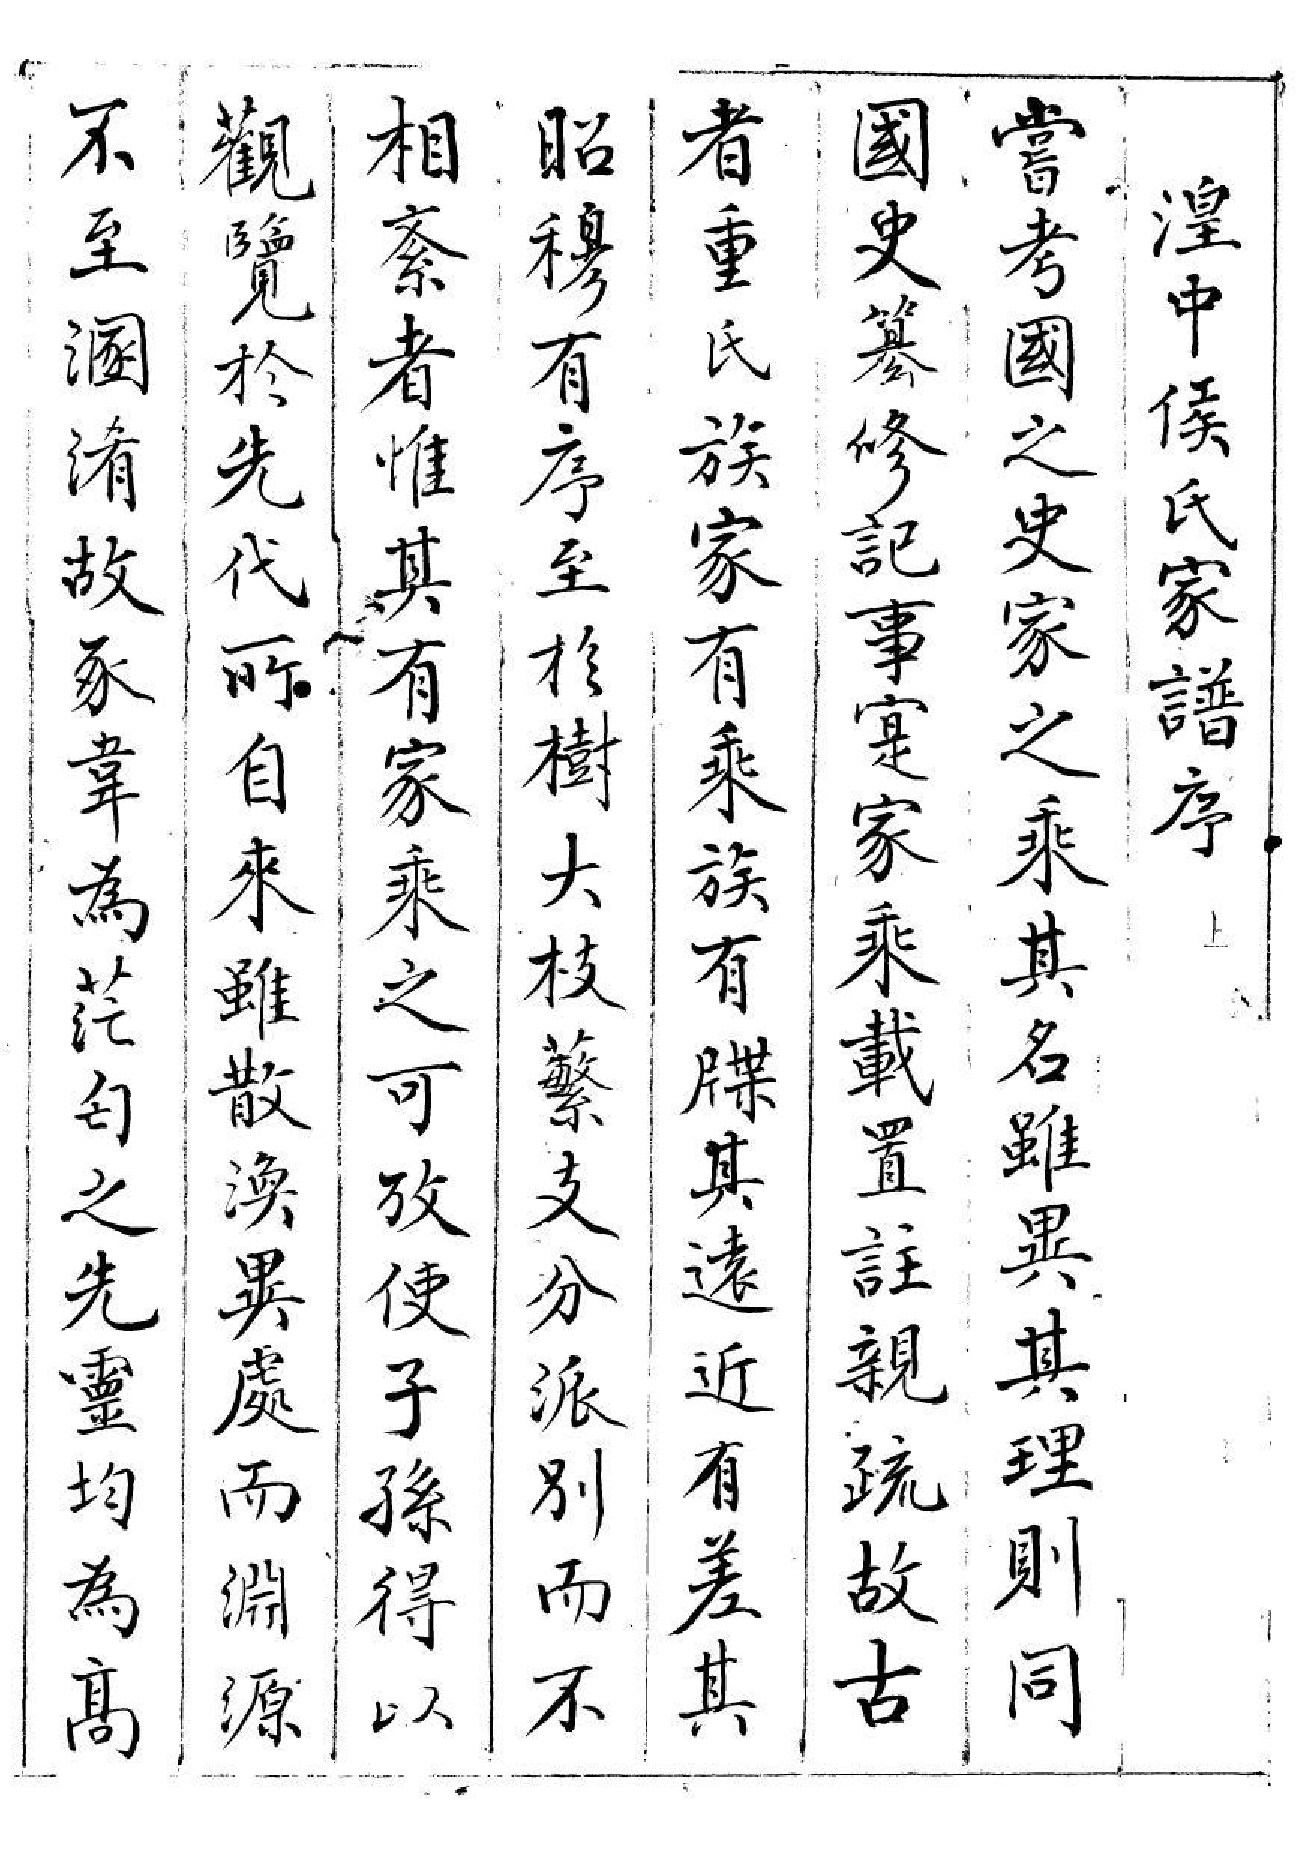 湟中侯氏家譜序 上
嘗考國之史家之乘其名雖異其理則同
國史纂修記事寔家乘載置註親疏故古
者重氏族家有乘族有牒其遠近有差其
昭穆有序至於樹大枝蘩支分派別而不
相紊者惟其有家乘之可攷使子孫得以
觀覽於先代所自來雖散渙異處而淵源
不至溷淆故豕韋為茫匄之先靈均為高